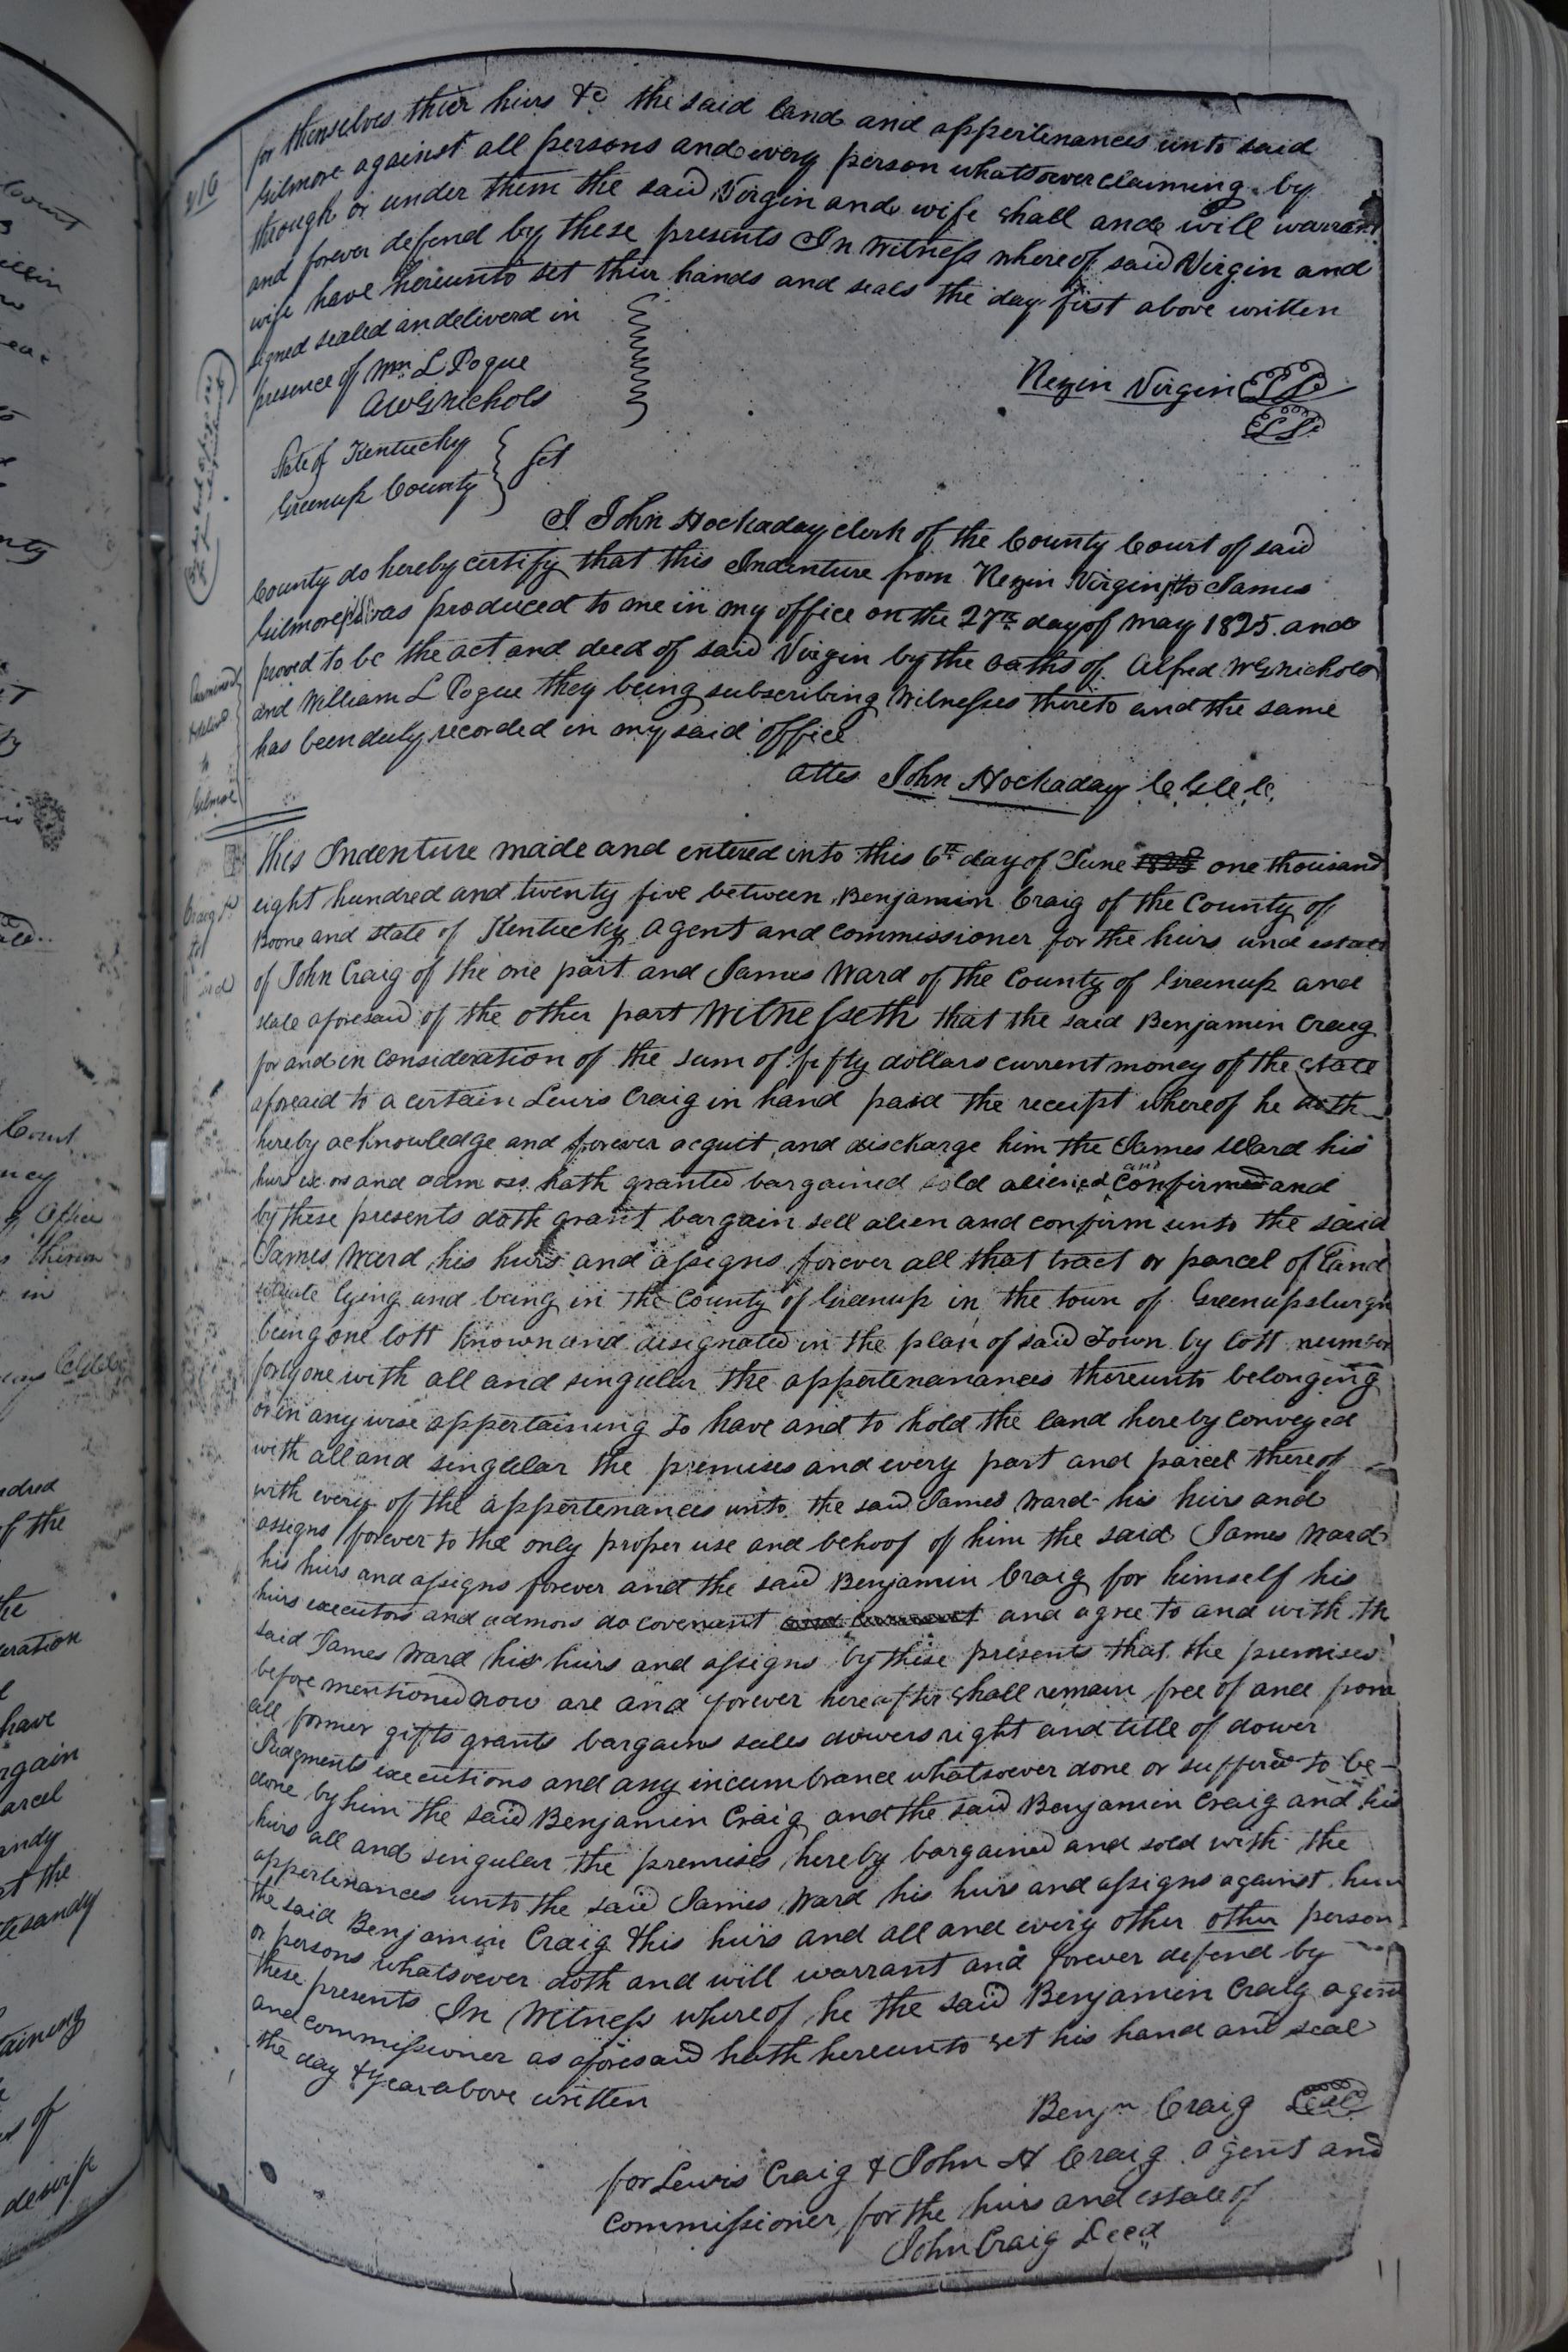 for themselves thier hiirs &c the said land and appertenances unto said
Gilmore against all persons and every person whatsoever claiming by
through or under them the said Virgin and wife shall and will warrant
and forever defend by these presents In Witness whereof said Virgin and
wife have hereunto set thier hands and seals the day first above written
signed sealed an deliverd in
presence of Wm L Pogue
A W G Nichols
Rezin Virgin LS
LS
State of Kentucky
Greenup County Sct
I John Hockaday clerk of the County Court of said
County do hereby certify that this Indenture from Rezin Virgin to James
Gilmore was produced to me in my office on the 27th day of May 1825 and
proved to be the act and deed of said Virgin by the oaths of Alfred W G Nichols
and William L Pogue they being subscribing Witnesses thereto and the same
has been duly recorded in my said office
Attes John Hockaday C G C C
This Indenture made and entered into this 6th day of June 1825 one thousand
eight hundred and twenty five between Benjamin Craig of the County of
Boone and state of Kentucky Agent and commissioner for the hiirs and estate
of John Craig of the one part and James Ward of the County of Greenup and
state aforesaid of the other part Witnesseth that the said Benjamin Craig
for and in consideration of the sum of fifty dollars current money of the state
aforesaid to a certain Lewis Craig in hand paid the receipt whereof he doth
hereby acknowledge and forever acquit and discharge him the James Ward his
hiirs ex ors and adm ors hath granted bargained sold aliened and confirmed and
by these presents doth grant bargain sell alien and confirm unto the said
James Ward his hiirs and assigns forever all that tract or parcel of Land
situate lying and being in the County of Greenup in the town of Greenupsburgh
being one lott known and designated in the plan of said Town by lott number
forty one with all and singular the appertenanances thereunto belonging
or in any wise appertaining To have and to hold the land hereby conveyed
with all and singular the premises and every part and parcel thereof
with every of the appertenances unto the said James Ward his heirs and
assigns forever to the only proper use and behoof of him the said James Ward
his hiirs and assigns forever and the said Benjamin Craig for himself his
hiirs executors and admors do covenant and agree to and with the
said James Ward his hiirs and assigns by these presents that the premises
before mentioned now are and forever hereafter shall remain free of and from
all former gifts grants bargains sales dowers right and title of dower
Judgments executions and any incumbrance whatsoever done or suffered to be
done by him the said Benjamin Craig and the said Benjamin Craig and his
hiirs all and singular the premises hereby bargained and sold with the
appertenances unto the said James Ward his hiirs and assigns against him
the said Benjamin Craig & his hiirs and all and every other other person
or persons whatsoever doth and will warrant and forever defend by
these presents In Witness whereof he the said Benjamin Craig agent
and commissioner as aforesaid hath hereunto set his hand and seal
the day & year above written
Benjn Craig Seal
for Lewis Craig & John H Craig Agent and
Commissioner for the hiirs and estate of
John Craig Decd